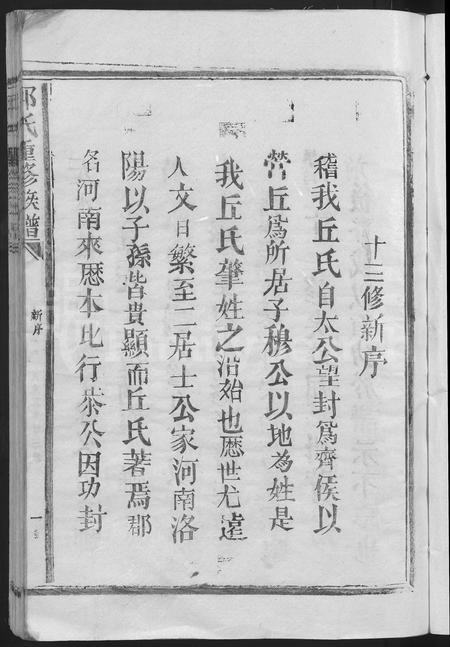 十三修新序
稽我丘氏自太公望封爲齊侯以
營丘爲所居子穆公以地為姓是
我丘氏肇姓之沿始也歷世尤遠
人文日繁至二居士公家河南洛
陽以子孫皆貴顯而丘氏著焉郡
名河南來歷本此行恭公因功封
邱氏重修族譜
新序
一